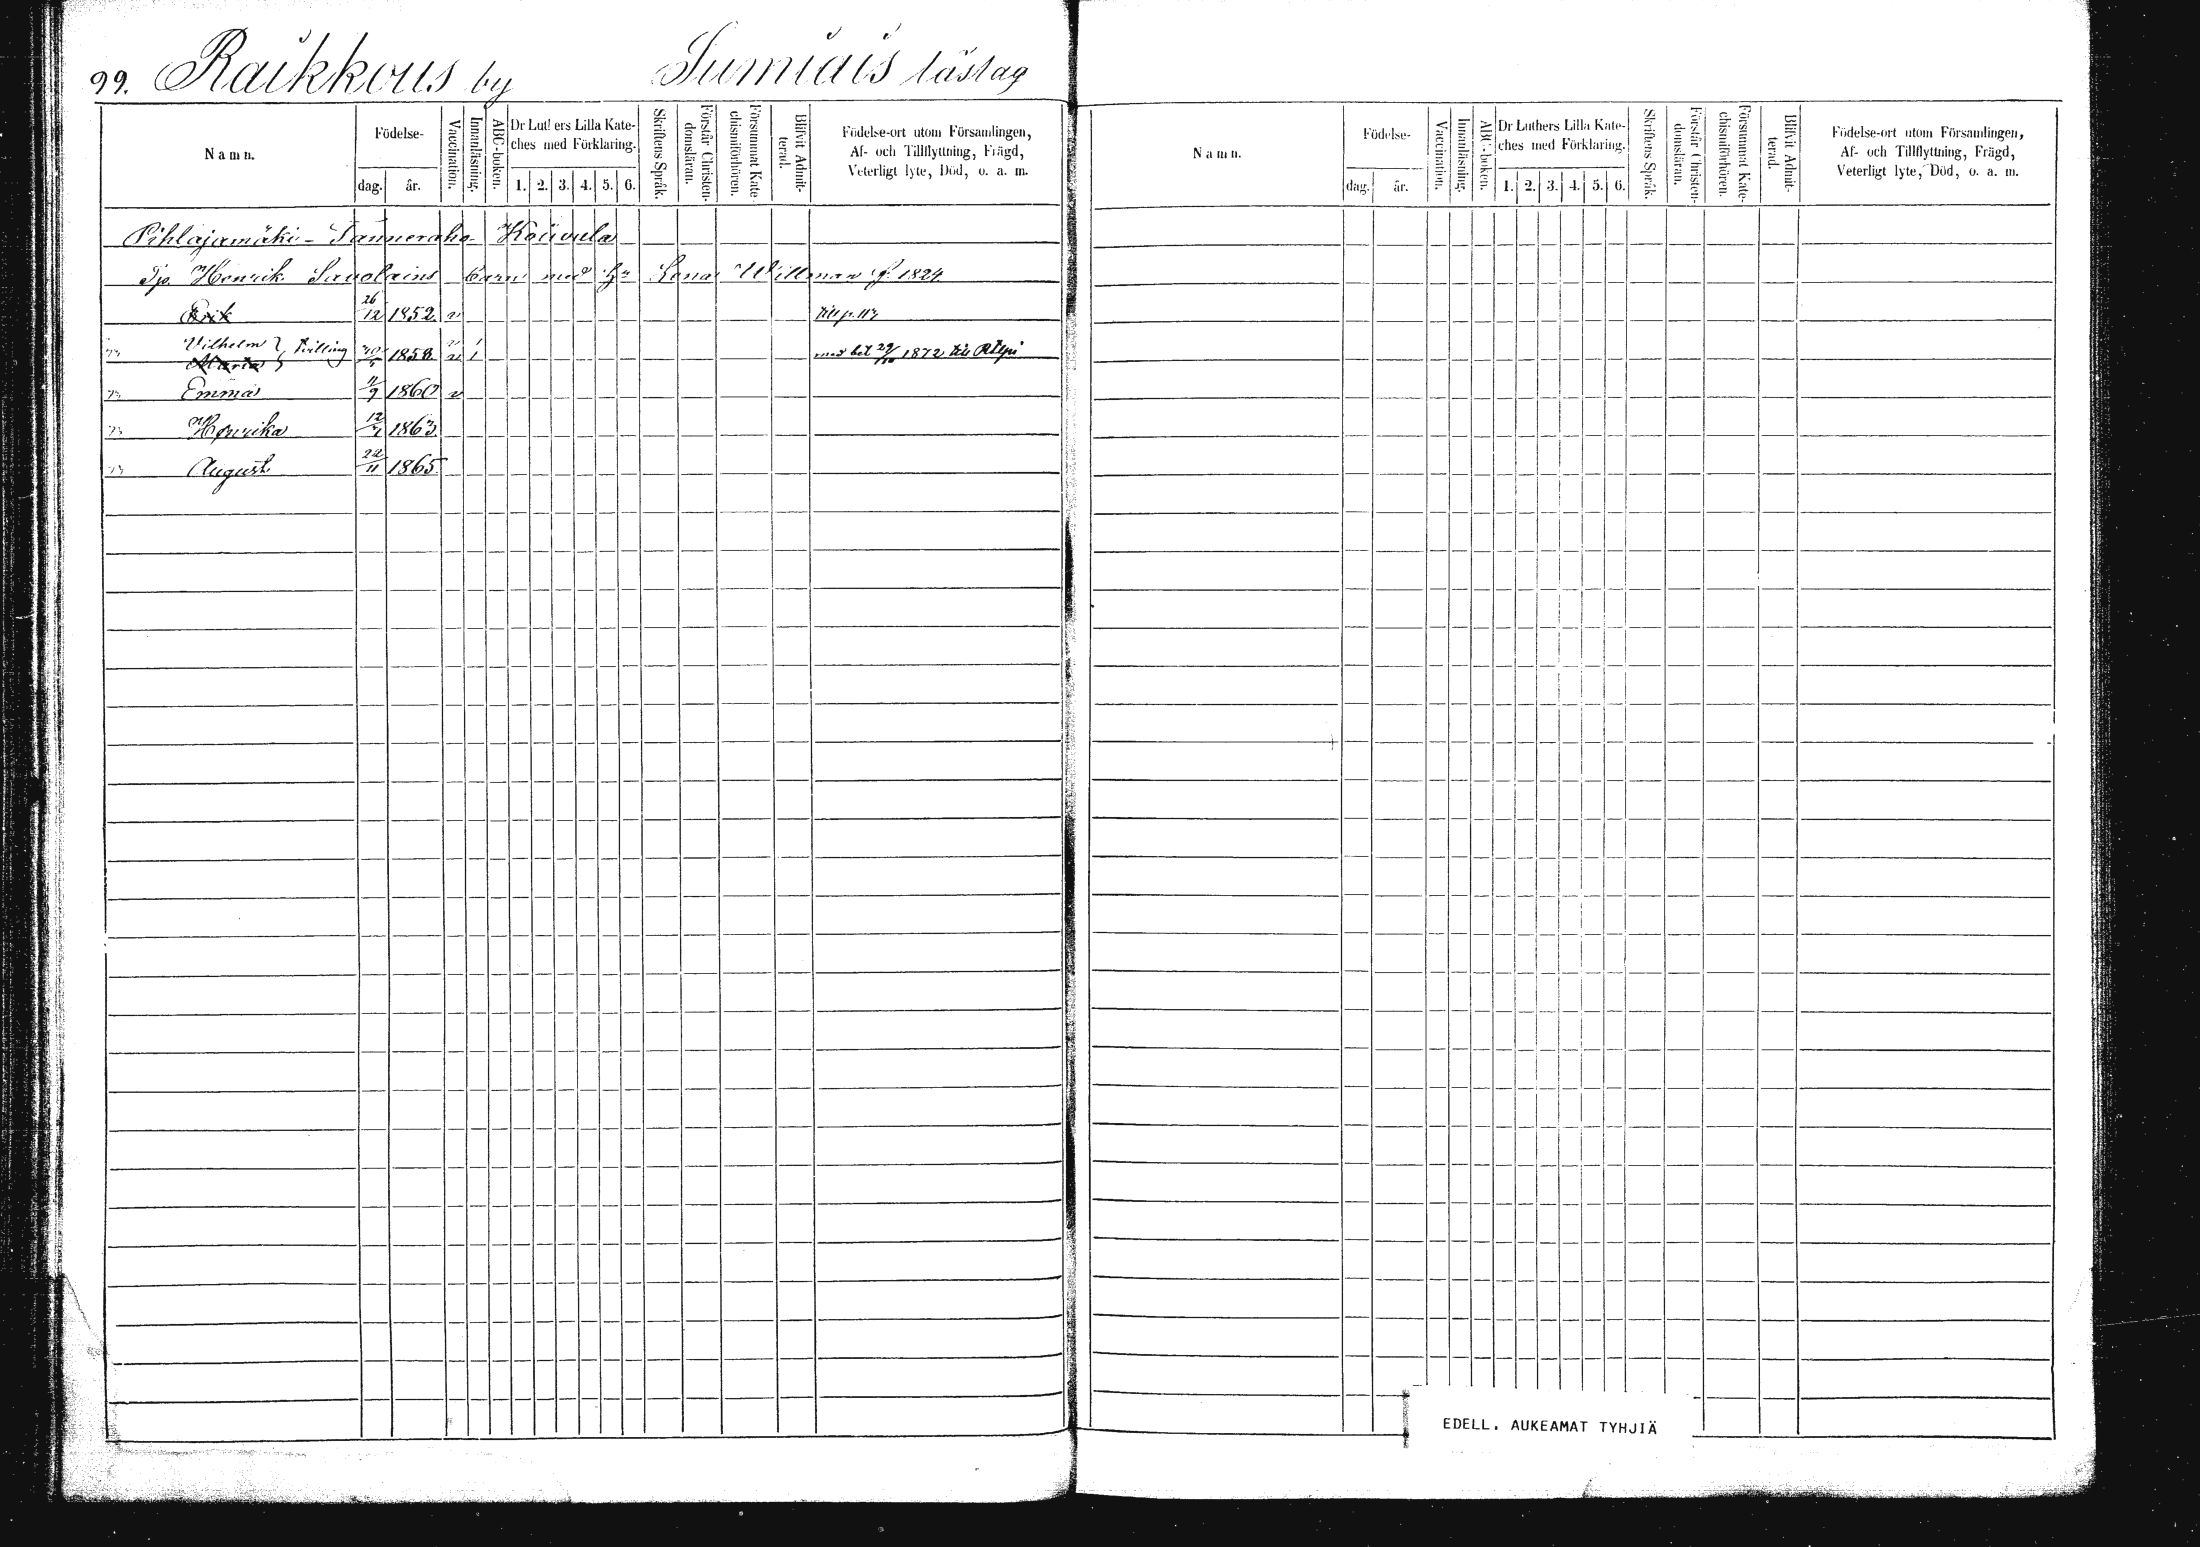 99. Raikkous by Sumiais läslag
Namn. Födelse- dag. år. Vaccination. Innanläsning. ABC-boken. Dr Luthers Lilla Kateches med Förklaring. 1. 2. 3. 4. 5. 6. Skriftens Språk. Förstår Christendomsläran. Försummat Katechismiförhören. Blifvit Admitterad. Födelse-ort utom Församlingen, Af- och Tillflyttning, Frägd, Veterligt lyte, Död, o. a. m.
Pihlajamäki - Tanneraho - Koivula
Tjs. Henrik Savolains barn med h:u Lena Willman f. 1824
Erik 26/12 1852. v till p. 113
Vilhelm } tvilling 1858. v 1
Maria v 1 med bet 29/10 1872 till
Emma 11/9 1860 v
Henrika 12/7 1863.
August 22/11 1865.
Namn. Födelse- dag. år. Vaccination. Innanläsning. ABC-boken. Dr Luthers Lilla Kateches med Förklaring. 1. 2. 3. 4. 5. 6. Skriftens Språk. Förstår Christendomsläran. Försummat Katechismiförhören. Blifvit Admitterad. Födelse-ort utom Församlingen, Af- och Tillflyttning, Frägd, Veterligt lyte, Död, o. a. m.
EDELL. AUKEAMAT TYHJIÄ